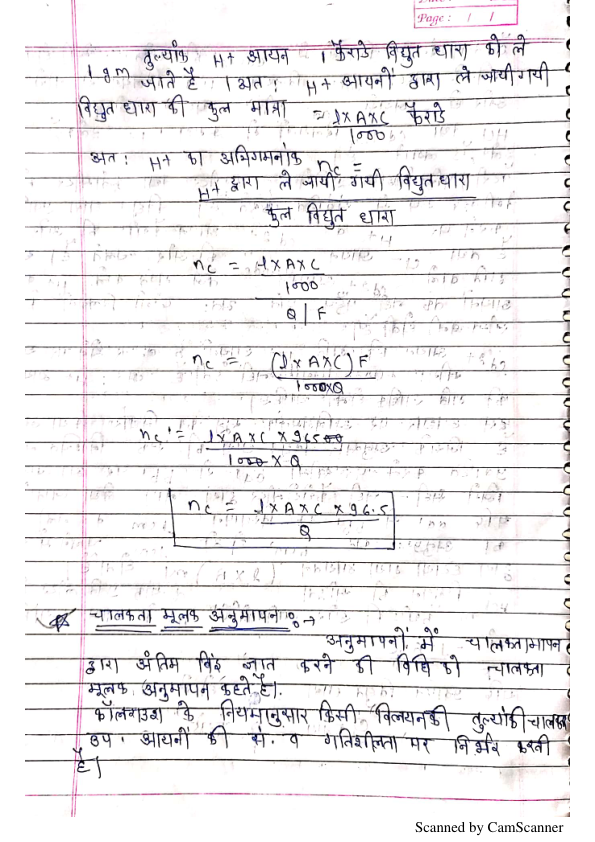 Page : / /
तुल्यांक H+ आयन 1 फैराडे विद्युत धारा को ले
1 gm जाते है । अत : H+ आयनों द्वारा ले जायी गयी
विद्युत धारा की कुल मात्रा = l×A×C फैराडे
1000
अत : H+ का अभिगमनांक nc =
H+ द्वारा ले जायी गयी विद्युत धारा
कुल विद्युत धारा
nc = l×A×C
1000
Q | F
nc = (l×A×C) F
1000×Q
nc = l×A×C × 96500
1000 × Q
nc = l×A×C × 96.5
Q
चालकता मूलक अनुमापन :→
अनुमापनों में चालकतामापन
द्वारा अंतिम बिंदु ज्ञात करने की विधि को चालकता
मूलक अनुमापन कहते है।
कॉलराउश के नियमानुसार किसी विलयनकी तुल्यांकी चालकता
उप. आयनों की सं. व गतिशीलता पर निर्भर करती
है।
Scanned by CamScanner